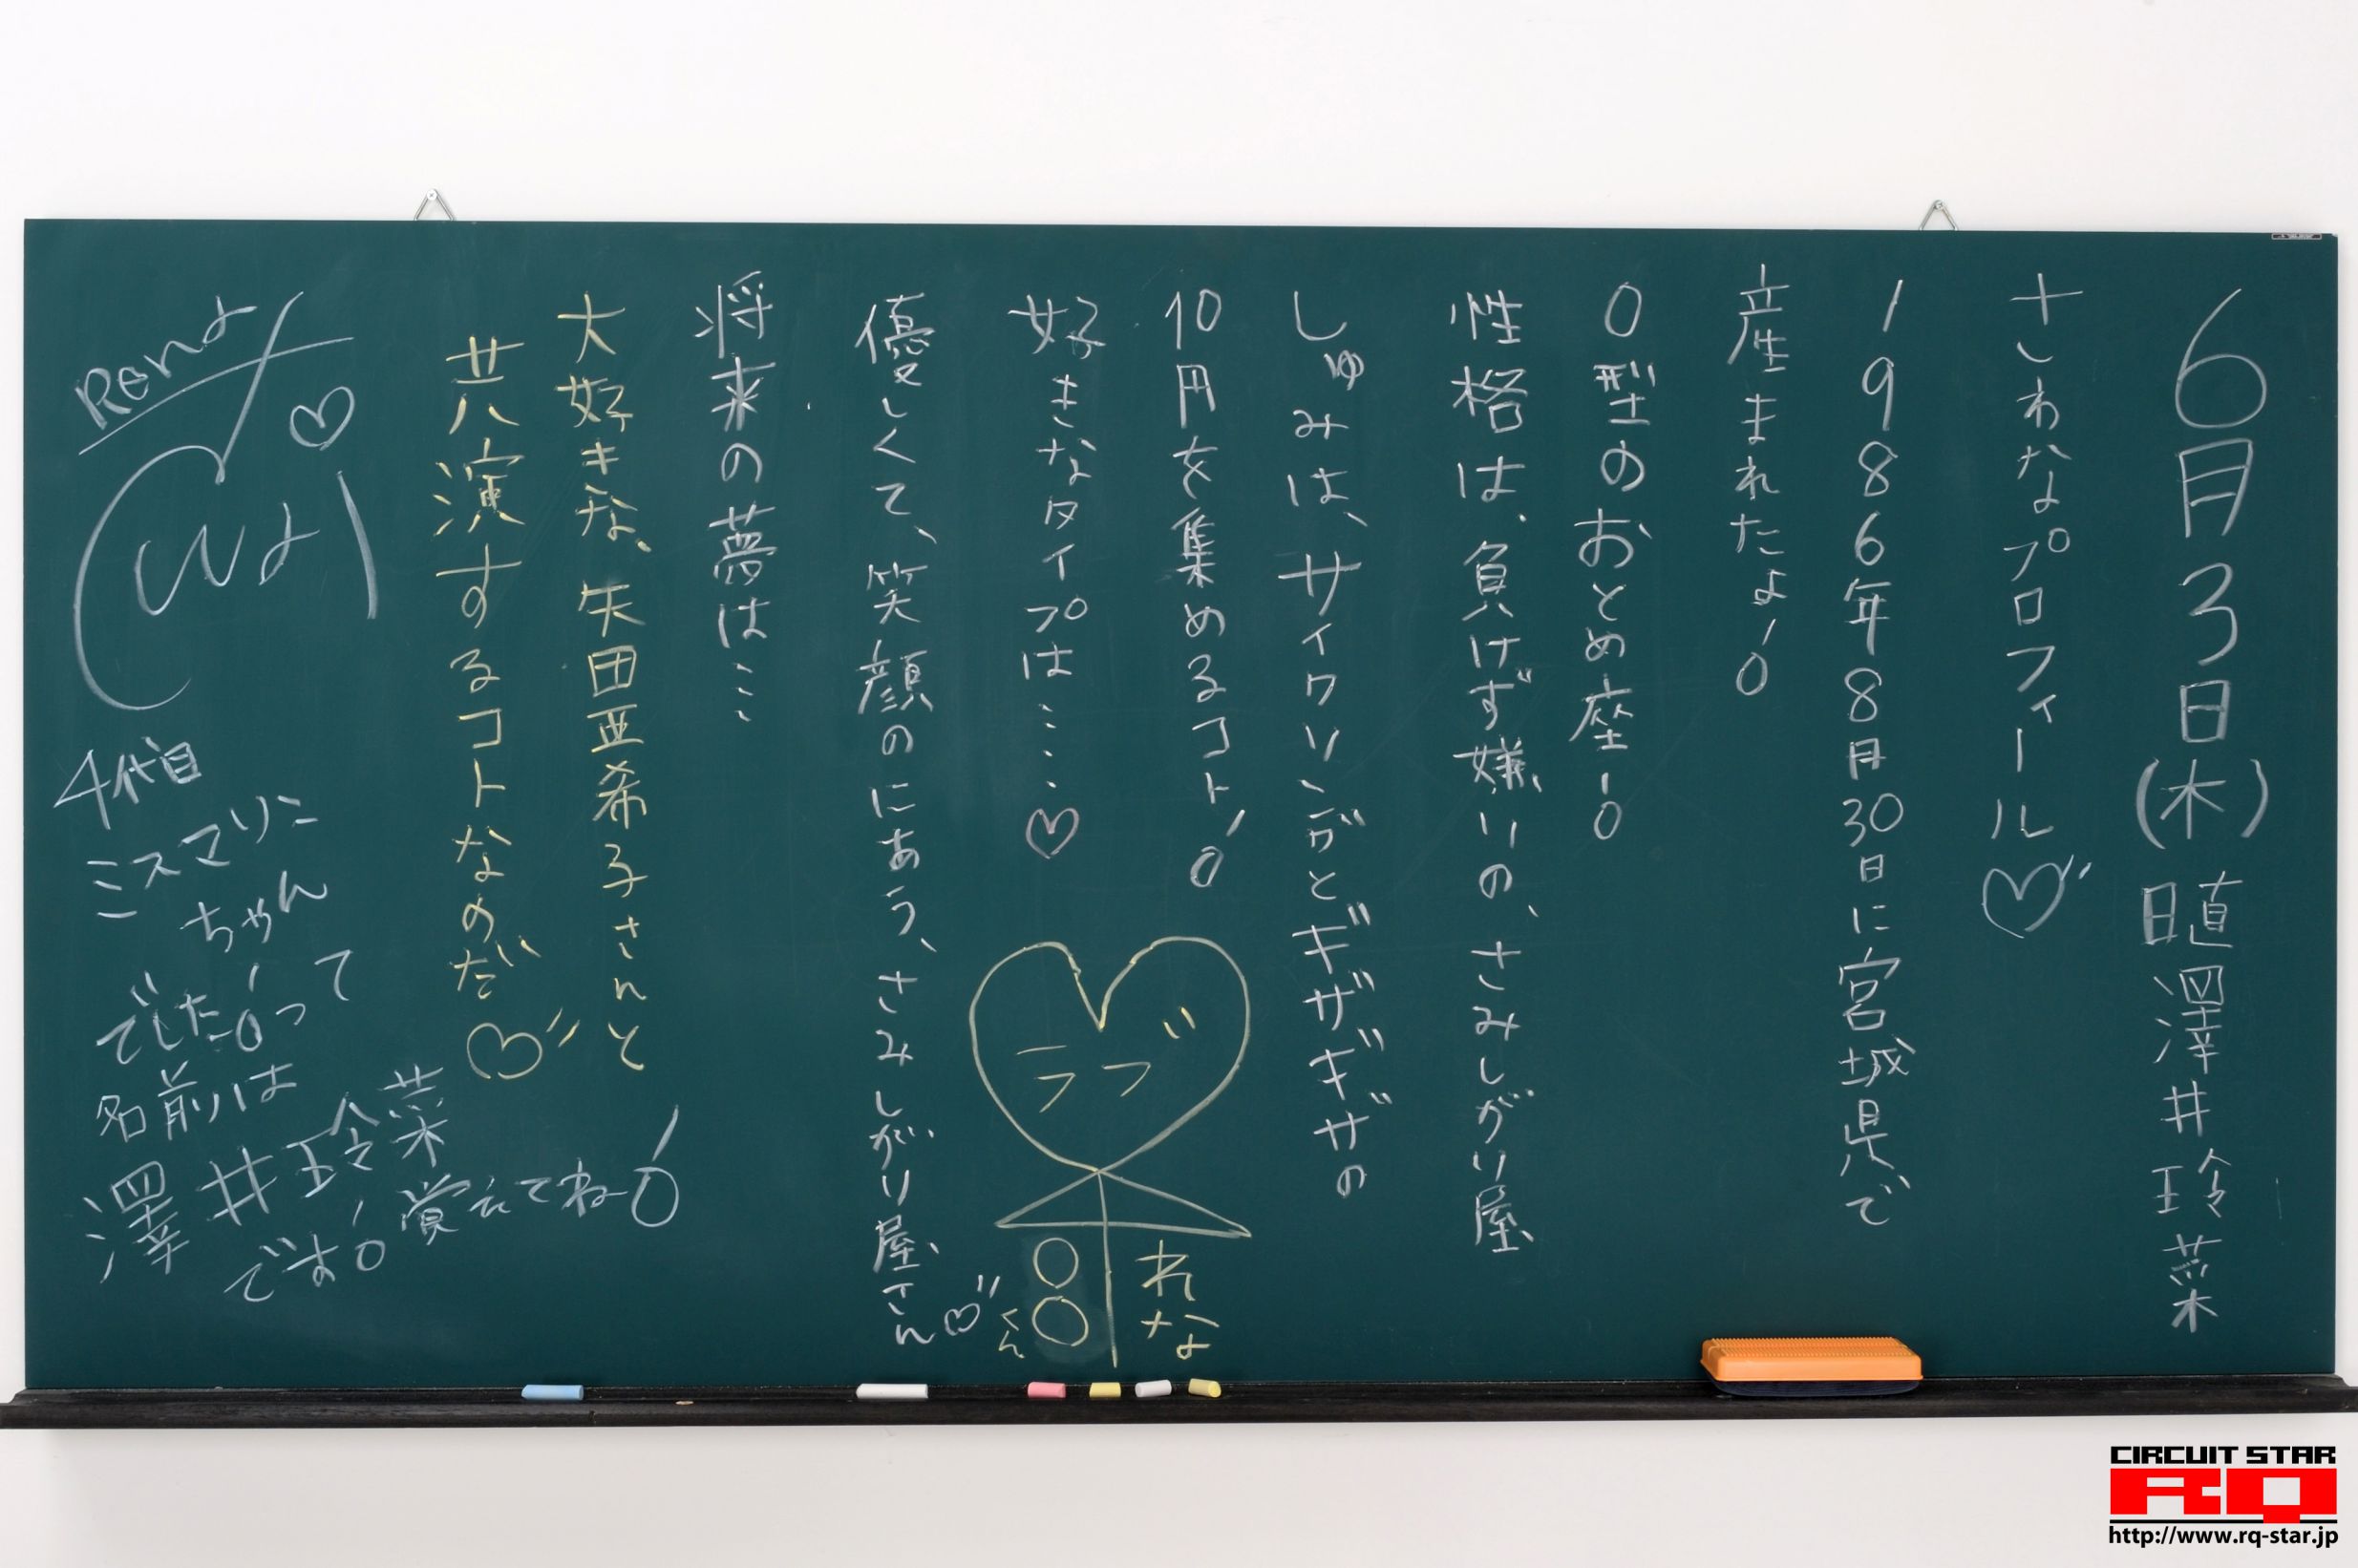 6月3日(木)日直 澤井玲菜
さわなプロフィール♡
1986年8月30日に宮城県で
産まれたよ!
O型のおとめ座!
性格は、負けず嫌いの、さみしがり屋、
しゅみは、サイクリングとギザギザの
10円を集めるコト!
好きなタイプは‥‥♡
優しくて、笑顔のにあう、さみしがり屋さん♡
ラブラブ
れな
〇〇くん
将来の夢は…
大好きな、矢田亜希子さんと
共演するコトなのだ♡
Rena
♡
4代目
ミスマリン
ちゃん
でした!って
名前は
澤井玲菜
です!覚えてね!
CIRCUIT STAR
RQ
http://www.rq-star.jp